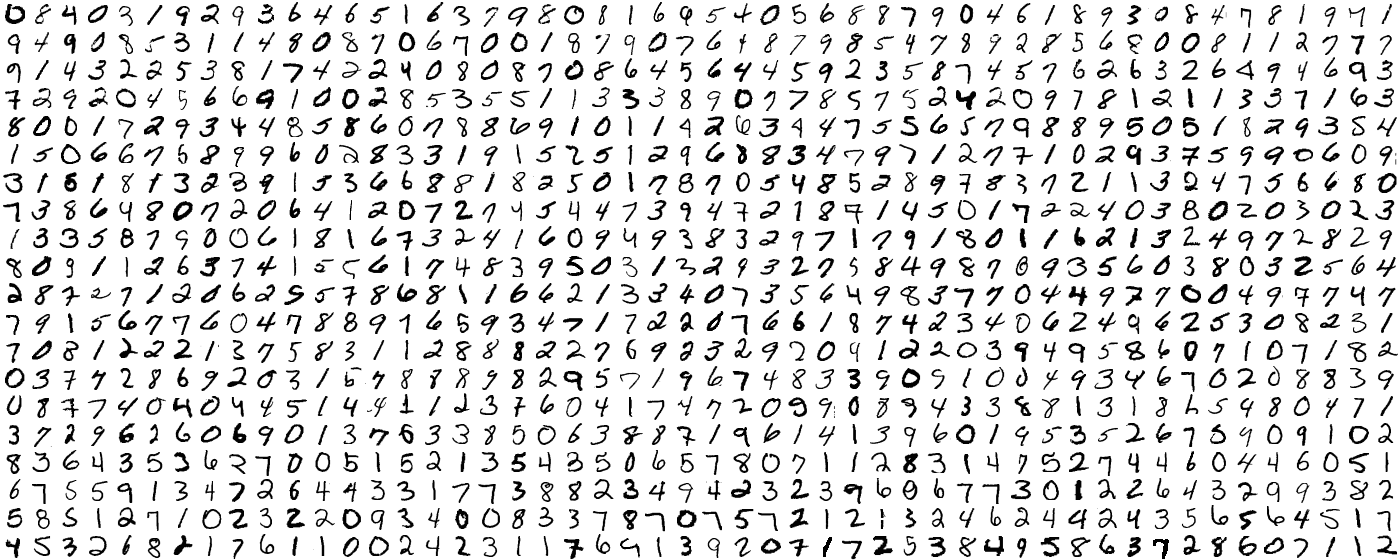 0 8 4 0 3 1 9 2 9 3 6 4 6 5 1 6 3 7 9 8 0 8 1 6 6 5 4 0 5 6 8 8 7 9 0 4 6 1 8 9 3 0 8 4 7 8 1 9 7 1
9 4 9 0 8 5 3 1 1 4 8 0 8 7 0 6 7 0 0 1 8 7 9 0 7 6 4 8 7 9 8 5 4 7 8 9 2 8 5 6 8 0 0 8 1 1 2 7 7 7
9 1 4 3 2 2 5 3 8 1 7 4 2 2 4 0 8 0 8 7 0 8 6 4 5 6 4 4 5 9 2 3 5 8 7 4 5 7 6 2 6 3 2 6 4 9 4 6 9 3
7 2 9 2 0 4 5 6 6 9 1 0 0 2 8 5 3 5 5 1 1 3 3 3 8 9 0 7 7 8 5 7 5 2 4 2 0 9 7 8 1 2 1 1 3 3 7 1 6 3
8 0 0 1 7 2 9 3 4 4 8 5 8 6 0 7 8 8 6 9 1 0 1 1 4 2 6 3 4 4 7 5 5 6 5 7 9 8 8 9 5 0 5 1 8 2 9 3 5 4
1 5 0 6 6 7 5 8 9 9 6 0 2 8 3 3 1 9 1 5 2 5 1 2 9 6 8 8 3 4 7 9 7 1 2 7 7 1 0 2 9 3 7 5 9 9 0 6 0 9
3 1 5 1 8 1 3 2 3 9 1 5 3 6 6 8 8 1 8 2 5 0 1 7 8 7 0 5 4 8 5 2 8 9 7 8 3 7 2 1 1 3 2 4 7 5 6 6 8 0
7 3 8 6 4 8 0 7 2 0 6 4 1 2 0 7 2 7 4 5 4 4 7 3 9 4 7 2 1 8 7 1 4 5 0 1 7 2 2 4 0 3 8 0 2 0 3 0 2 3
1 3 3 5 8 7 9 0 0 6 1 8 1 6 7 3 2 4 1 6 0 9 4 9 3 8 3 2 9 7 1 7 9 1 8 0 1 1 6 2 1 3 2 4 9 7 2 8 2 9
8 0 9 1 1 2 6 3 7 4 1 5 5 6 1 7 4 8 3 9 5 0 3 1 3 2 9 3 2 7 5 8 4 9 8 7 0 9 3 5 6 0 3 8 0 3 2 5 6 4
2 8 7 2 7 1 2 0 6 2 5 5 7 8 6 8 1 1 6 6 2 1 3 3 4 0 7 3 5 6 4 9 8 3 7 7 0 4 4 9 7 7 0 0 4 9 7 7 4 7
7 9 1 5 6 7 7 6 0 4 7 8 8 9 1 6 5 9 3 4 7 1 7 2 2 0 7 6 6 1 8 7 4 2 3 4 0 6 2 4 9 6 2 5 3 0 8 2 3 1
7 0 8 1 2 2 2 1 3 7 5 8 3 1 1 2 8 8 8 2 2 7 6 9 2 3 2 9 2 0 9 1 2 2 0 3 9 4 9 5 8 6 0 7 1 0 7 1 8 2
0 3 7 7 2 8 6 9 2 0 3 1 5 7 8 8 8 9 8 2 9 5 7 1 9 6 7 4 8 3 3 3 9 0 9 1 0 0 4 9 3 4 6 7 0 2 0 8 8 3 9
0 8 7 7 4 0 4 0 4 4 5 1 4 4 1 1 2 3 7 6 0 4 1 7 4 7 2 0 9 9 0 8 9 4 3 3 8 8 1 3 1 8 5 9 8 0 4 7 1
3 7 2 9 6 2 6 0 6 9 0 1 3 7 5 3 3 8 5 0 6 3 8 8 7 1 9 6 1 4 1 3 9 6 0 1 9 5 3 5 2 6 7 8 9 0 9 1 0 2
8 3 6 4 3 5 3 6 2 7 0 0 5 1 5 2 1 3 5 4 3 5 0 6 5 7 8 0 7 1 1 2 8 3 1 4 7 5 2 7 4 4 6 0 4 4 6 0 5 1
6 7 5 5 9 1 3 4 7 2 6 4 4 3 3 1 7 7 3 8 8 2 3 4 9 4 2 3 2 3 9 6 0 6 7 7 3 0 1 2 2 6 4 3 2 9 9 3 8 2
5 8 5 1 2 7 1 0 2 3 2 2 0 9 3 4 0 0 8 3 3 7 8 7 0 7 5 7 2 1 2 1 3 2 4 6 2 4 4 2 4 3 5 6 5 6 4 5 1 7
4 5 3 2 6 8 2 1 7 6 1 1 0 0 2 4 2 3 1 1 7 6 9 1 3 9 2 0 7 1 7 2 5 3 8 4 9 5 8 6 3 7 2 8 6 0 7 1 1 3